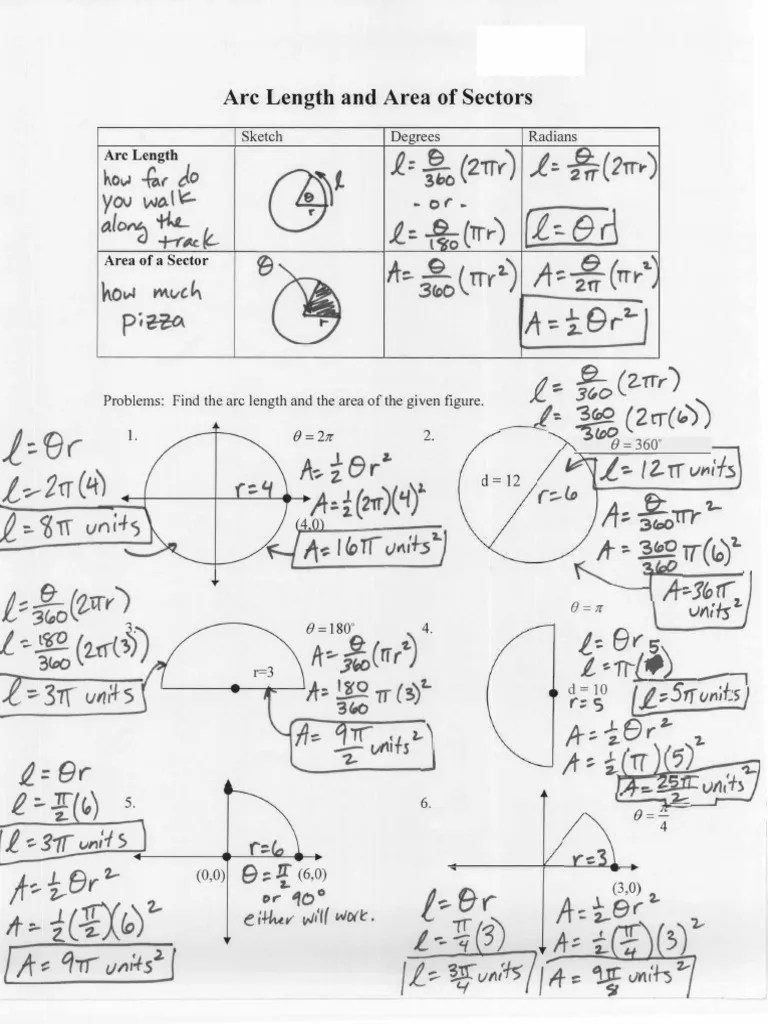 Arc Length and Area of Sectors
Sketch Degrees Radians
Arc Length
how far do
you walk
along the
track
θ
r
l
l = θ/360 (2πr)
- or -
l = θ/180 (πr)
l = θ/2π (2πr)
l = θr
Area of a Sector
how much
pizza
θ
r
A = θ/360 (πr²)
A = θ/2π (πr²)
A = ½ θr²
Problems: Find the arc length and the area of the given figure.
1.
θ = 2π
l = θr
l = 2π(4)
l = 8π units
r=4
(4,0)
A = ½ θr²
A = ½(2π)(4)²
A = 16π units²
2.
θ = 360°
d = 12
r = 6
l = θ/360 (2πr)
l = 360/360 (2π(6))
l = 12π units
A = θ/360 πr²
A = 360/360 π(6)²
A = 36π
units²
3.
θ = 180°
l = θ/360 (2πr)
l = 180/360 (2π(3))
l = 3π units
r=3
A = θ/360 (πr²)
A = 180/360 π(3)²
A = 9π/2 units²
4.
θ = π
d = 10
r = 5
l = θr
l = π(5)
l = 5π units
A = ½ θr²
A = ½(π)(5)²
A = 25π/2 units²
5.
l = θr
l = π/2 (6)
l = 3π units
r=6
(0,0)
(6,0)
θ = π/2
or 90°
either will work.
A = ½ θr²
A = ½(π/2)(6)²
A = 9π units²
6.
θ = π/4
r=3
(3,0)
l = θr
l = π/4 (3)
l = 3π/4 units
A = ½ θr²
A = ½(π/4)(3)²
A = 9π/8 units²